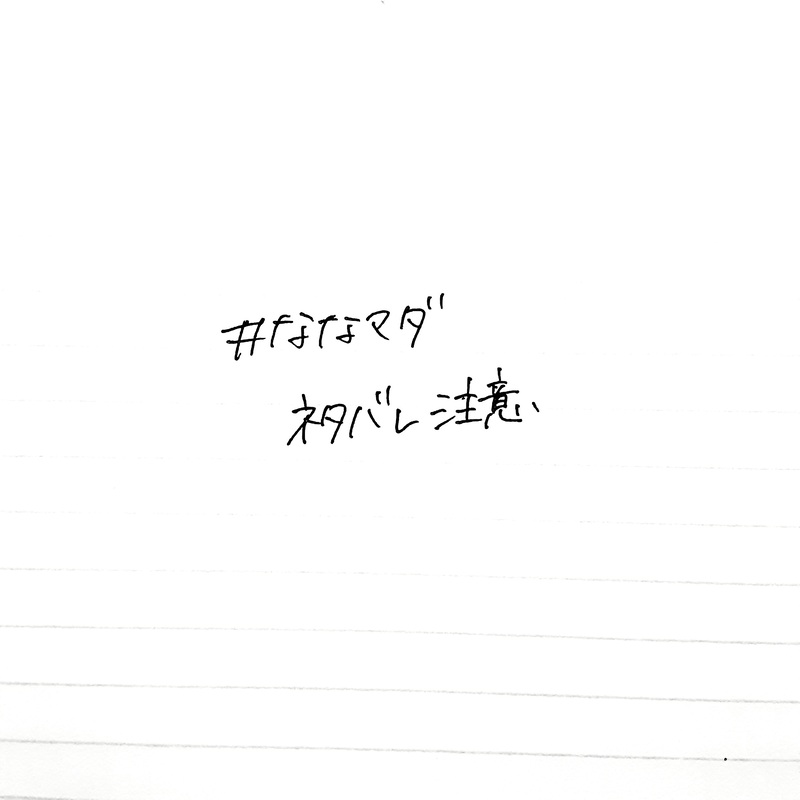 #ななマダ
ネタバレ注意